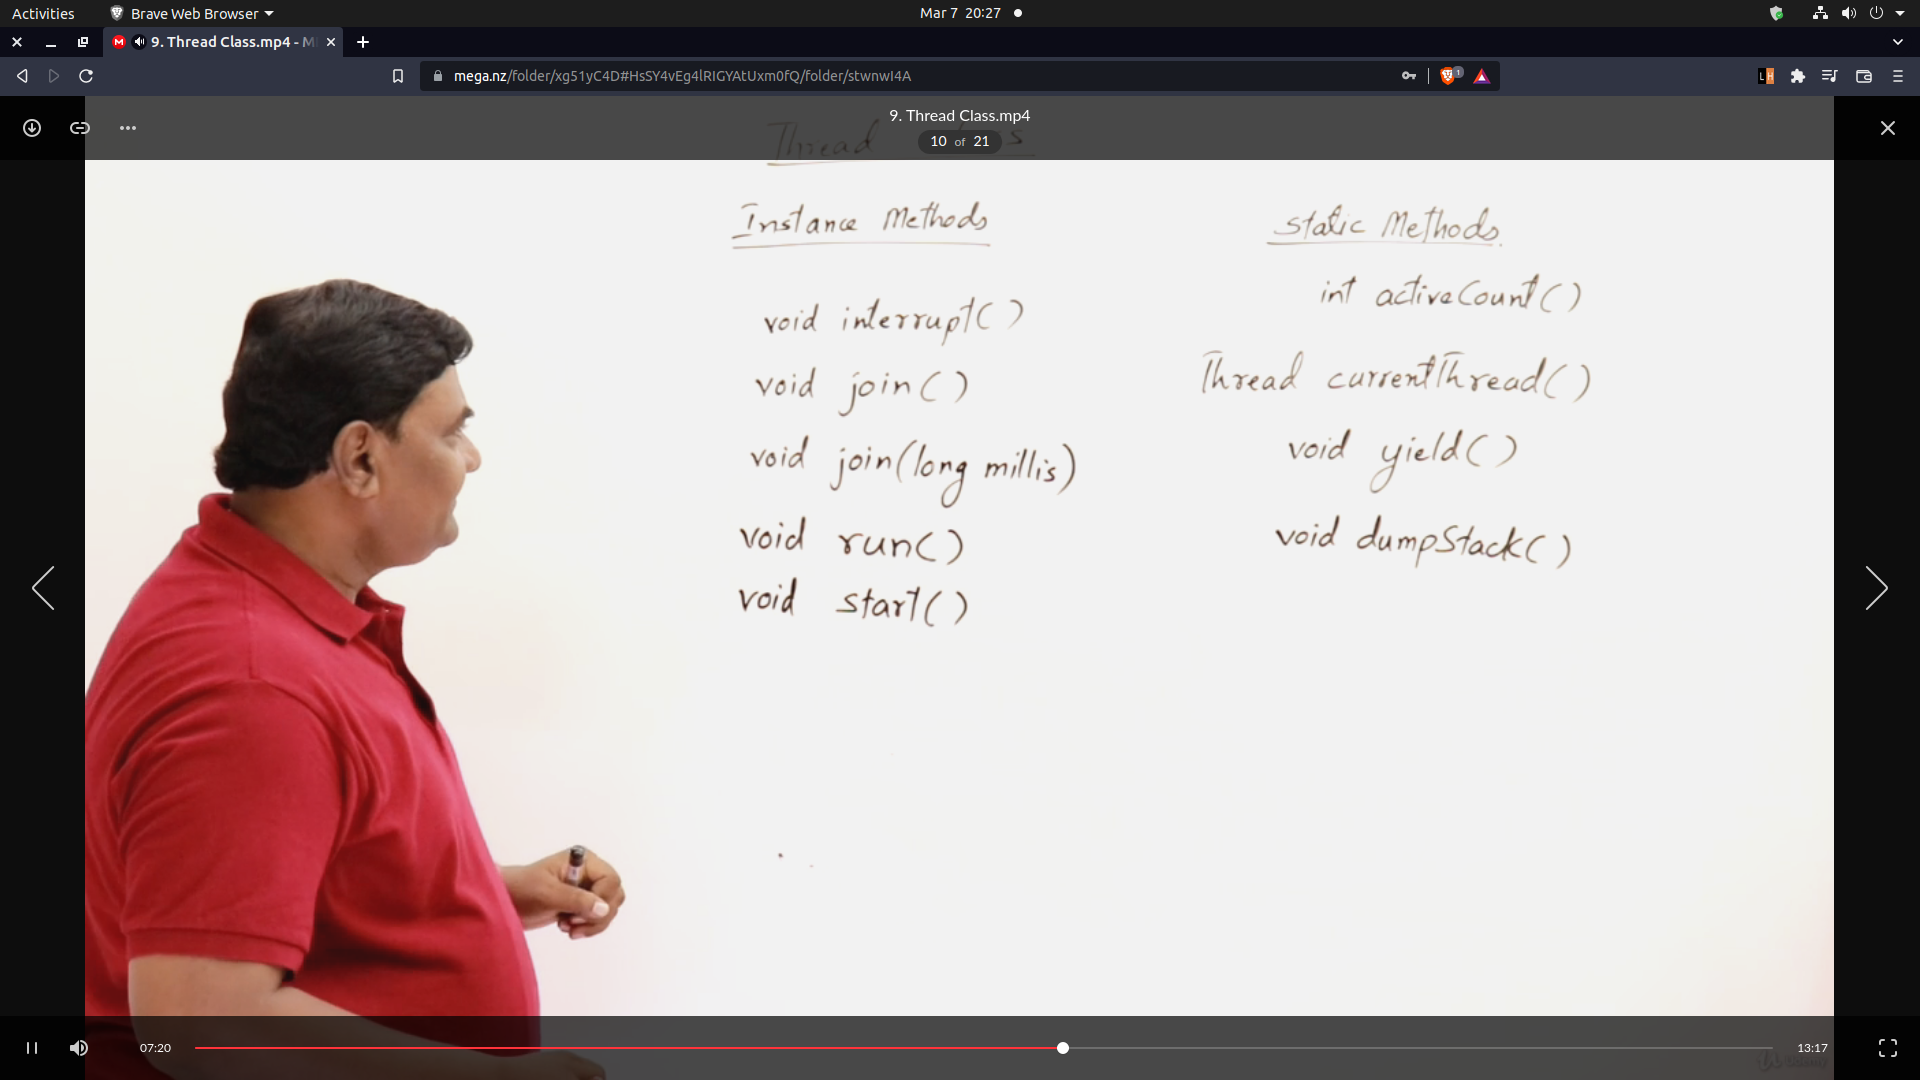 Activities Brave Web Browser Mar 7 20:27
9. Thread Class.mp4 - M
mega.nz/folder/xg51yC4D#HsSY4vEg4lRIGYAtUxm0fQ/folder/stwnwI4A 1
9. Thread Class.mp4
10 of 21
Thread
Instance Methods
void interrupt()
void join()
void join(long millis)
void run()
void start()
Static Methods.
int activeCount()
Thread currentThread()
void yield()
void dumpStack()
07:20 13:17